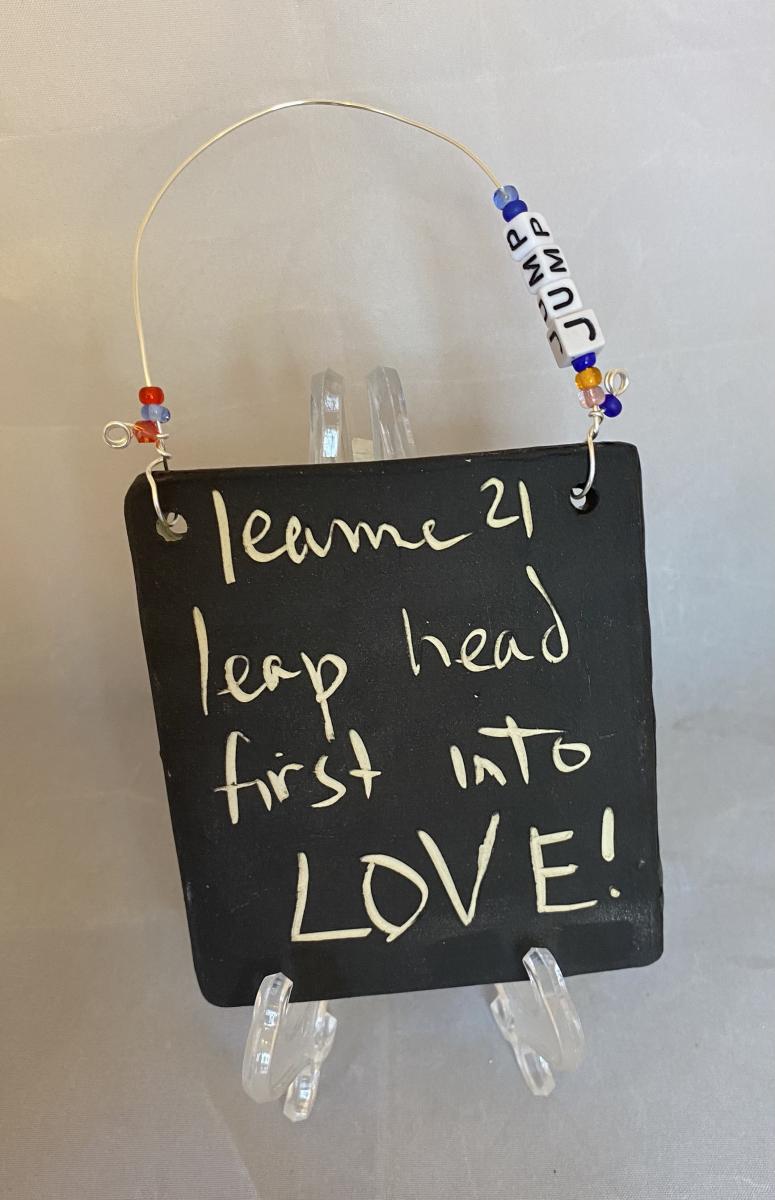 JUMP
leame 21
leap head
first into
LOVE!